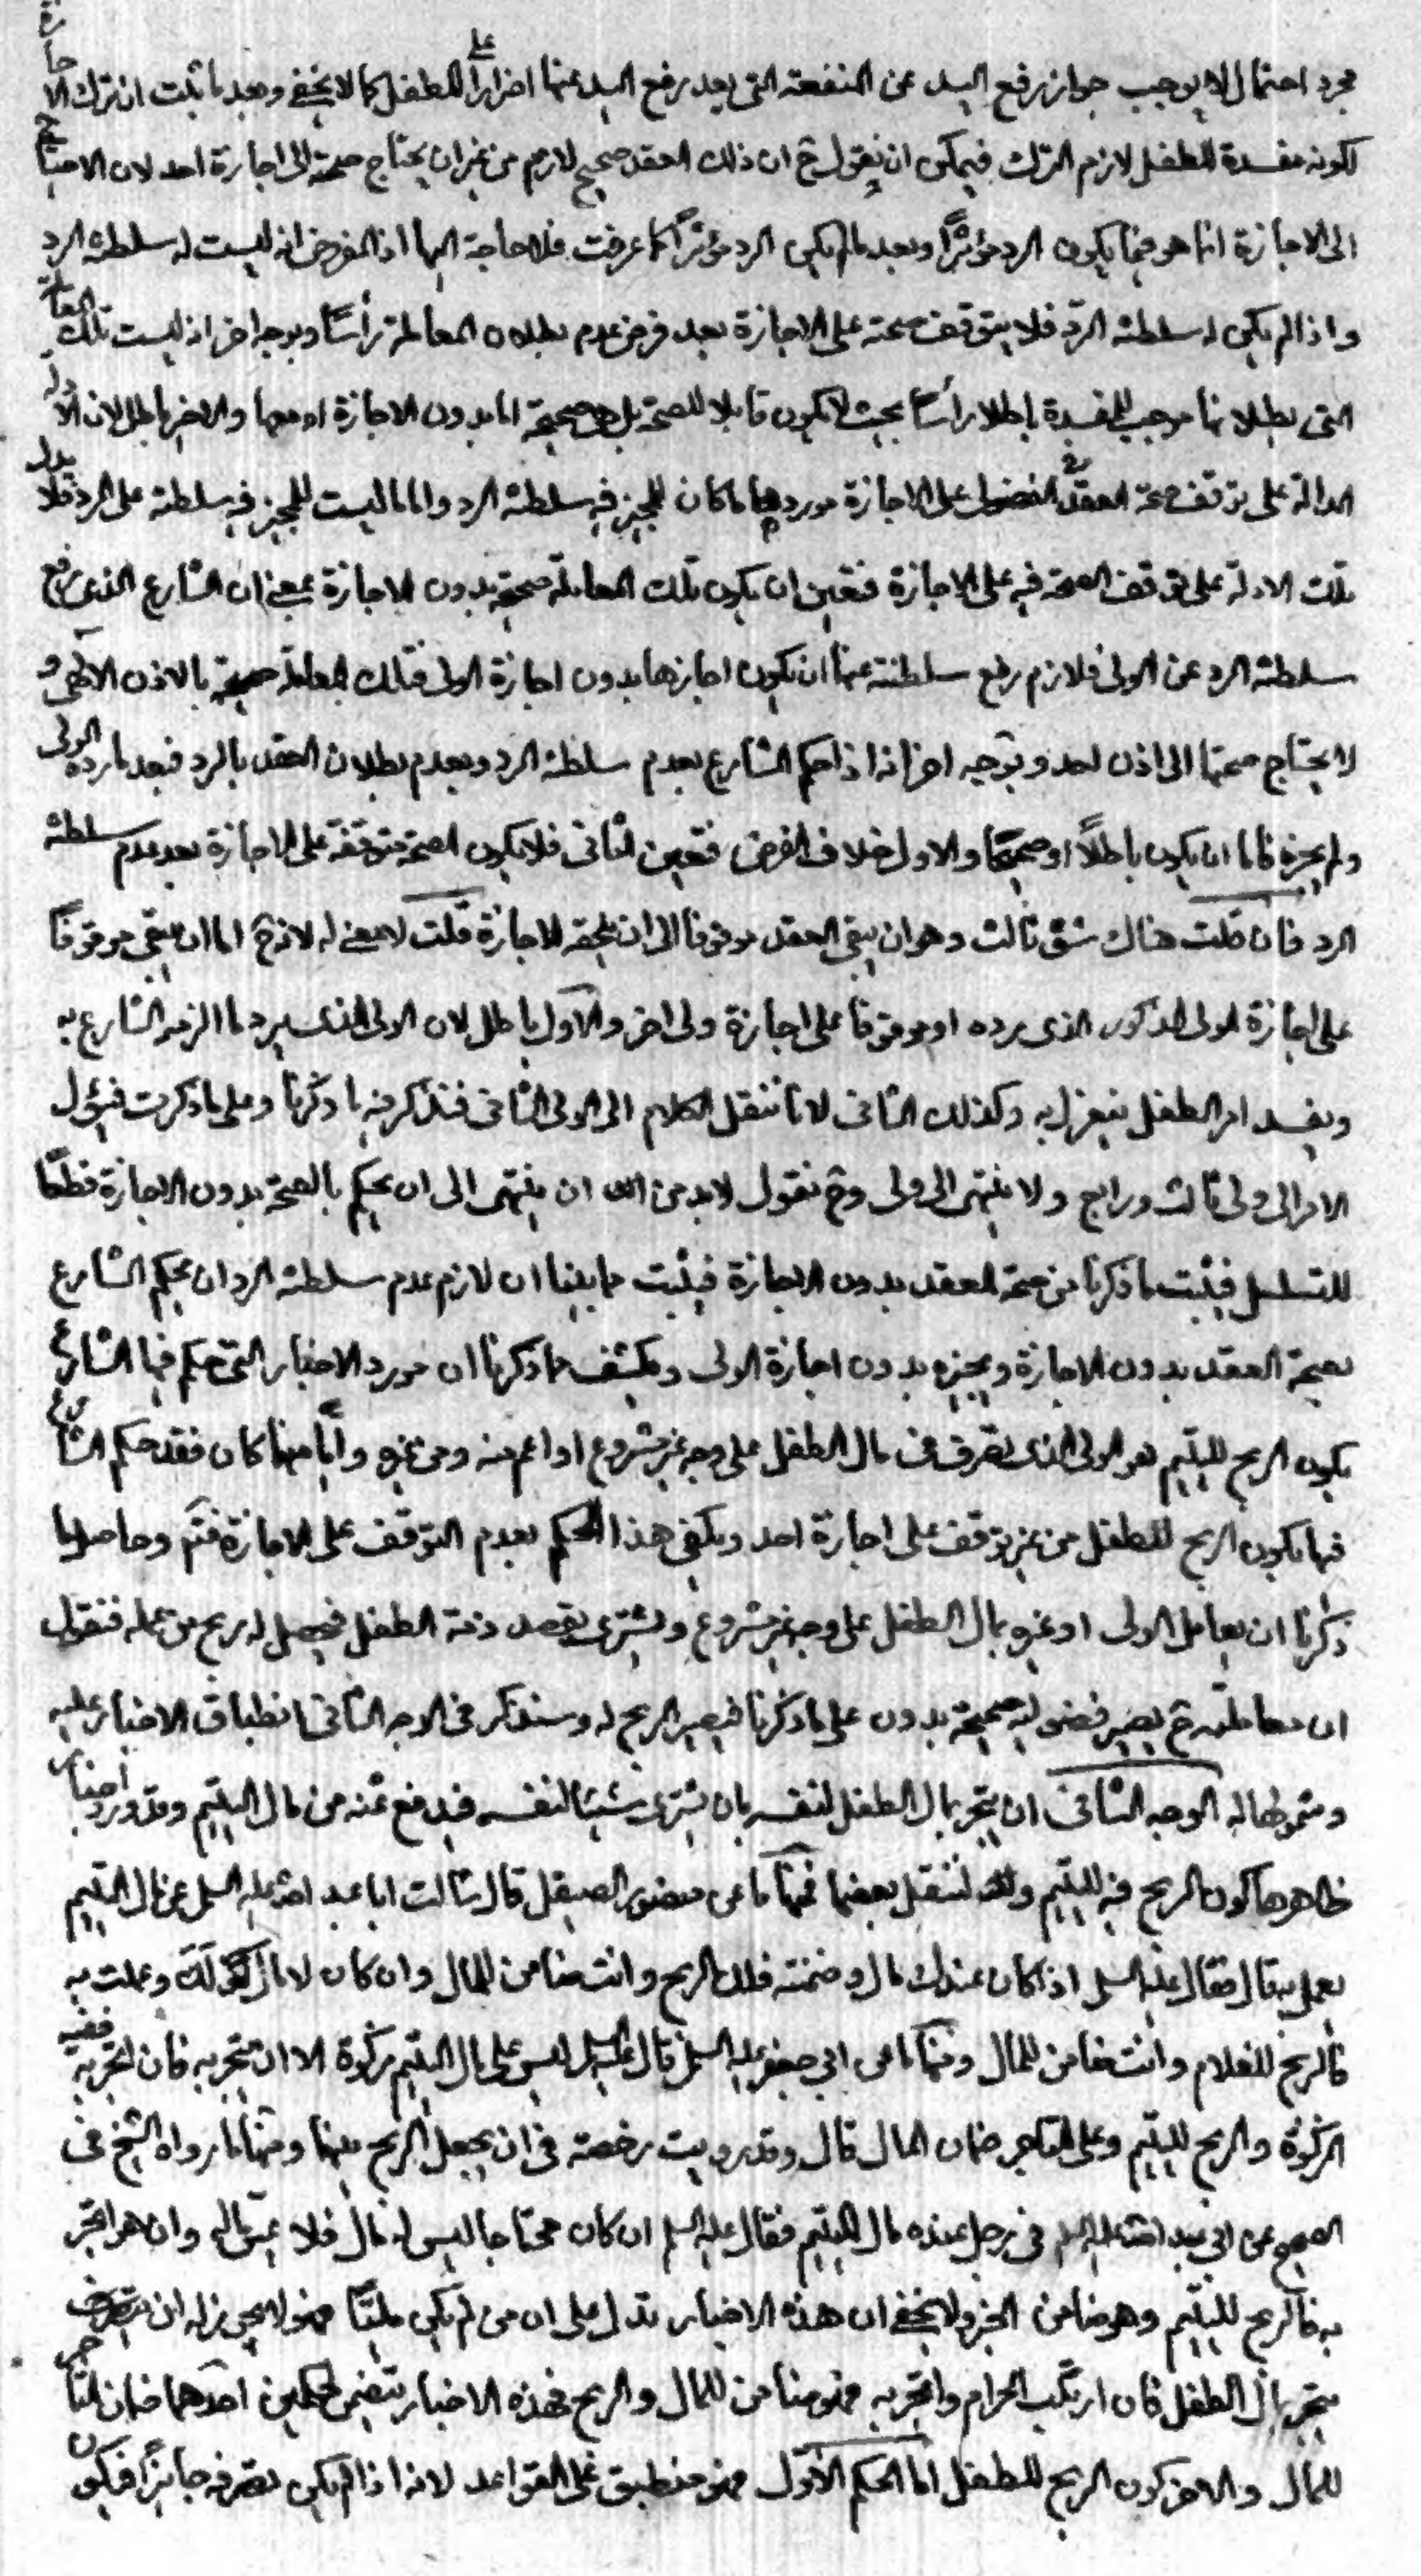 مجرد احتمال لا يوجب جواز رفع اليد عن المنفعة التي يعد رفع اليد عنها اضراراً على الطفل كما لا يخفى وبعد ما ثبت ان ترك الاجازة
لكونه مفسدة للطفل لازم الترك فيمكن ان يقول ح ان ذلك العقد صحيح لازم من غير ان يحتاج صحته الى اجازة احد لان الاحتياج
الى الاجازة انما هو فيما يكون الرد مؤثراً وبعد ما لم يكن الرد مؤثراً كما عرفت فلا حاجة اليها اذ المفروض انه ليست له سلطنة الرد
واذا لم يكن له سلطنة الرد فلا يتوقف صحته على الاجازة بعد فرض عدم بطلان المعاملة رأساً وبوجه اخر اذ ليست تلك المعاملة
التي بطلانها موجب للمفسدة باطلا رأساً بحيث لا يكون قابلا للصحة بل هو صحيحة اما بدون الاجازة او معها والاخير باطل لان الادلة
الدالة على توقف صحة العقد الفضولي على الاجازة موردها ما كان للمجيز فيه سلطنة الرد واما ما ليست للمجيز فيه سلطنة على الرد فلا يدل
تلك الادلة على توقف الصحة فيه على الاجازة فتعين ان يكون تلك المعاملة صحيحة بدون الاجازة بمعنى ان الشارع الذي رفع
سلطنة الرد عن الولي فلازم رفع سلطنته عنها ان يكون اجازها بدون اجازة الولي فتلك المعاملة صحيحة بالاذن الالهي و
لا يحتاج صحتها الى اذن احد وبوجه اخر انه اذا حكم الشارع بعدم سلطنة الرد وبعدم بطلان العقد بالرد فبعد ما رده الولي
ولم يجزه فاما ان يكون باطلاً او صحيحاً والاول خلاف الفرض فتعين الثاني فلا يكون الصحة متوقفة على الاجازة بعد عدم سلطنة
الرد فان قلت هناك شق ثالث وهو ان يبقى العقد موقوفا الى ان يلحقه الاجازة قلت لا معنى له لانه ح اما ان يبقى موقوفاً
على اجازة الولي المذكور الذي يرده او موقوفا على اجازة ولي اخر والاول باطل لان الولي الذي يرد ما الزمه الشارع به
ويفسد امر الطفل ينعزل به وكذلك الثاني لانا ننقل الكلام الى الولي الثاني فنذكر فيه ما ذكرنا وعلى ما ذكرت فيؤل
الامر الى ولي ثالث ورابع ولا ينتهي الى ولي وح نقول لابد من ان ينتهي الى ان يحكم بالصحة بدون الاجازة قطعاً
للتسلسل فثبت ما ذكرنا من صحة العقد بدون الاجازة فيثبت مما بينا ان لازم عدم سلطنة الرد ان يحكم الشارع
بصحة العقد بدون الاجازة ويجيزه بدون اجازة الولي ويكشف عما ذكرنا ان مورد الاخبار التي حكم فيها الشارع
بكون الربح لليتيم هو الولي الذي تصرف في مال الطفل على وجه غير مشروع او اعم منه ومن غيره واياً منهما كان فقد حكم الشارع
فيها بكون الربح للطفل من غير توقف على اجازة احد ويكفي هذا الحكم بعدم التوقف على الاجازة فتم وحاصل ما
ذكرنا ان يعامل الولي او غيره بمال الطفل على وجه غير مشروع ويشتري بقصد ذمة الطفل فيحصل له ربح من عمله فنقول
ان معاملته ح يصير فضولية صحيحة بدون على ما ذكرنا فيصير الربح له وسنذكر في الوجه الثاني انطباق الاخبار عليه
وشمولها له الوجه الثاني ان يتجر بمال الطفل لنفسه بان يشتري شيئا لنفسه فيدفع ثمنه من مال اليتيم وقد ورد اخبار
ظاهرها كون الربح فيه لليتيم ولننقل بعضها فمنها ما عن منصور الصيقل قال سالت ابا عبد الله عليه السلم عن مال اليتيم
يعمل به قال فقال عليه السلم اذا كان عندك مال وضمنته فلك الربح وانت ضامن للمال وان كان لا مال لك وعملت به
فالربح للغلام وانت ضامن للمال ومنها ما عن ابي جعفر عليه السلم قال عليه السلم ليس على مال اليتيم زكوة الا ان يتجر به فان اتجر به ففيه
الزكوة والربح لليتيم وعلى التاجر ضمان المال قال وقد رويت رخصة في ان يجعل الربح بينهما ومنها ما رواه الشيخ في
الصحيح عن ابي عبد الله عليه السلم في رجل عنده مال اليتيم فقال عليه السلم ان كان محتاجا ليس له مال فلا يمس ماله وان هو اتجر
به فالربح لليتيم وهو ضامن الخبر ولا يخفى ان هذه الاخبار تدل على ان من لم يكن ملياً فهو لا يجوز له ان يتصرف
يتجر بمال الطفل فان ارتكب الحرام واتجر به فهو ضامن للمال والربح فهذه الاخبار يتضمن لحكمين احدهما ضمان التاجر
للمال والاخر كون الربح للطفل اما الحكم الاول فهو منطبق على القواعد لانه اذا لم يكن تصرفه جايزاً فيكون